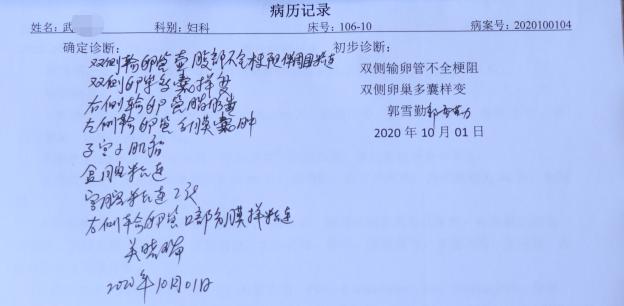 病历记录
姓名：武 科别：妇科 床号：106-10 病案号：2020100104
确定诊断：
双侧输卵管壶腹部不全梗阻伴周围粘连
双侧卵巢多囊样变
右侧输卵管脂肪
左侧输卵管系膜囊肿
子宫小肌瘤
盆腔粘连
宫腔粘连
右侧输卵管口部分膜样粘连
2020年10月01日
初步诊断：
双侧输卵管不全梗阻
双侧卵巢多囊样变
郭雪勤
2020年10月01日